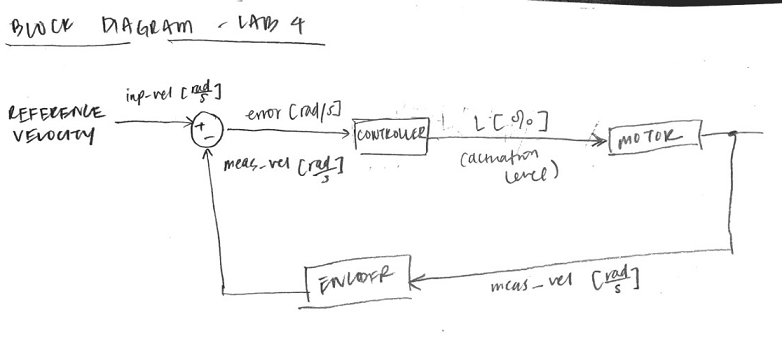 BLOCK DIAGRAM - LAB 4
inp-vel [rad/s]
REFERENCE
VELOCITY
+
-
error [rad/s]
CONTROLLER
L [%]
(actuation
level)
MOTOR
meas_vel [rad/s]
ENCODER
meas_vel [rad/s]